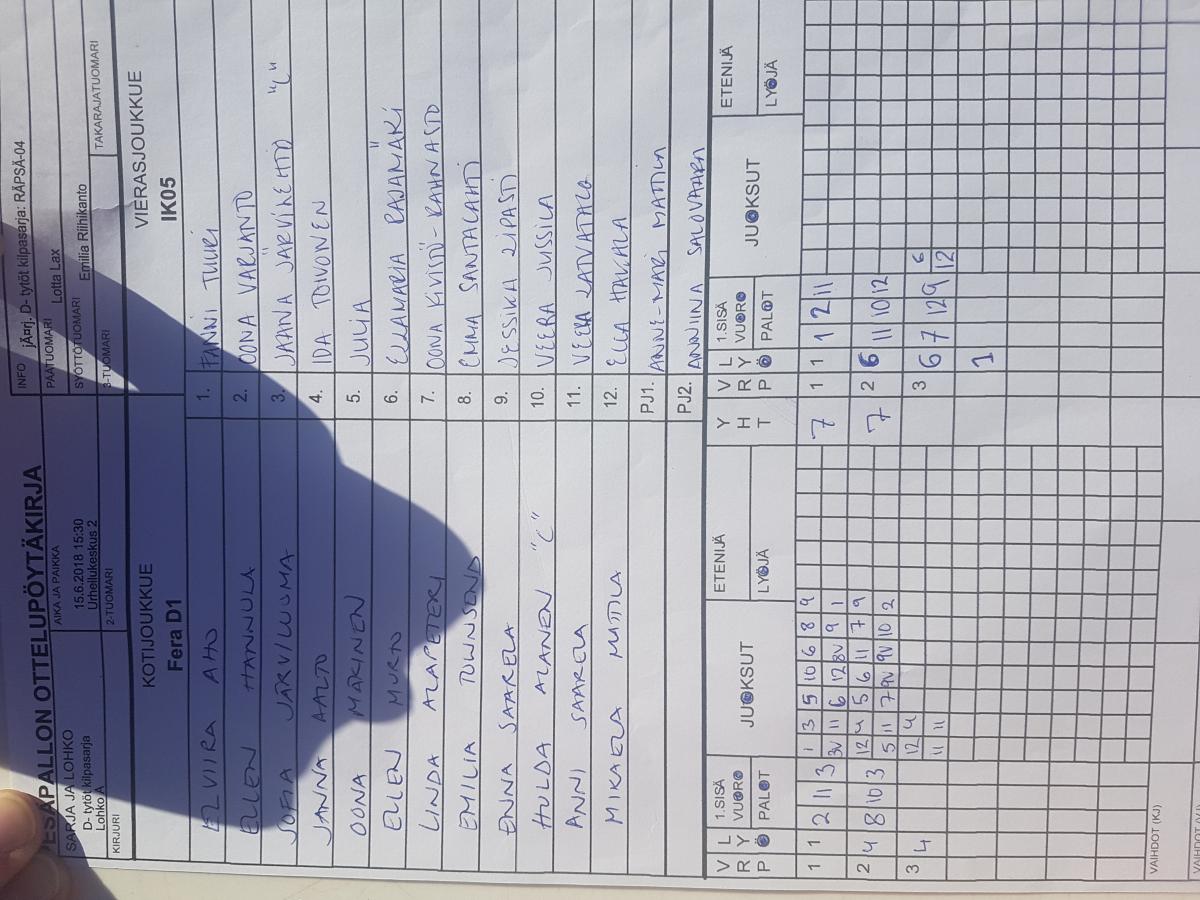 PESÄPALLON OTTELUPÖYTÄKIRJA
SARJA JA LOHKO
D- tytöt kilpasarja
Lohko A
AIKA JA PAIKKA
15.6.2018 15:30
Urheilukeskus 2
INFO jÃ¤rj. D- tytöt kilpasarja: RÄPSÄ-04
PÄÄTUOMARI Lotta Lax
SYÖTTÖTUOMARI Emilia Riihikanto
KIRJURI
2-TUOMARI
3-TUOMARI
TAKARAJATUOMARI
KOTIJOUKKUE
Fera D1
VIERASJOUKKUE
IK05
ELVIIRA AHO 1. FANNI TUURI
ELLEN HANNULA 2. OONA VARJANTO
SOFIA JÄRVILUOMA 3. JAANA JÄRVINEHTO "C"
JANNA AALTO 4. IDA TOIVONEN
OONA MÄKINEN 5. JULIA
ELLEN MURTO 6. ELLAMARIA RAJAMÄKI
LINDA ALAPETERI 7. OONA KIVISTÖ-RAHNASTO
EMILIA TOWNSEND 8. EMMA SANTALAHTI
ENNA SAARELA 9. JESSIKA LIPASTI
HULDA ALANEN "C" 10. VEERA JUSSILA
ANNI SAARELA 11. VEERA LATVATALO
MIKAELA MATTILA 12. ELLA HAKALA
PJ1. ANNE-MARI MATTILA
PJ2. ANNIINA SALOVAARA
V R P L Y Ö 1.SISÄ VUORO PALOT JUOKSUT ETENIJÄ LYÖJÄ Y H T V R P L Y Ö 1.SISÄ VUORO PALOT JUOKSUT ETENIJÄ LYÖJÄ
1 1 2 11 3 1 3 5 10 6 8 9 7 1 1 1 2 11
3V 11 6 12 8V 9 1
2 4 8 10 3 12 4 5 6 11 7 9 7 2 6 11 10 12
5 11 7 9V 9V 10 2
3 4 12 4 3 6 7 12 9 6
11 11 12
1
VAIHDOT (KJ)